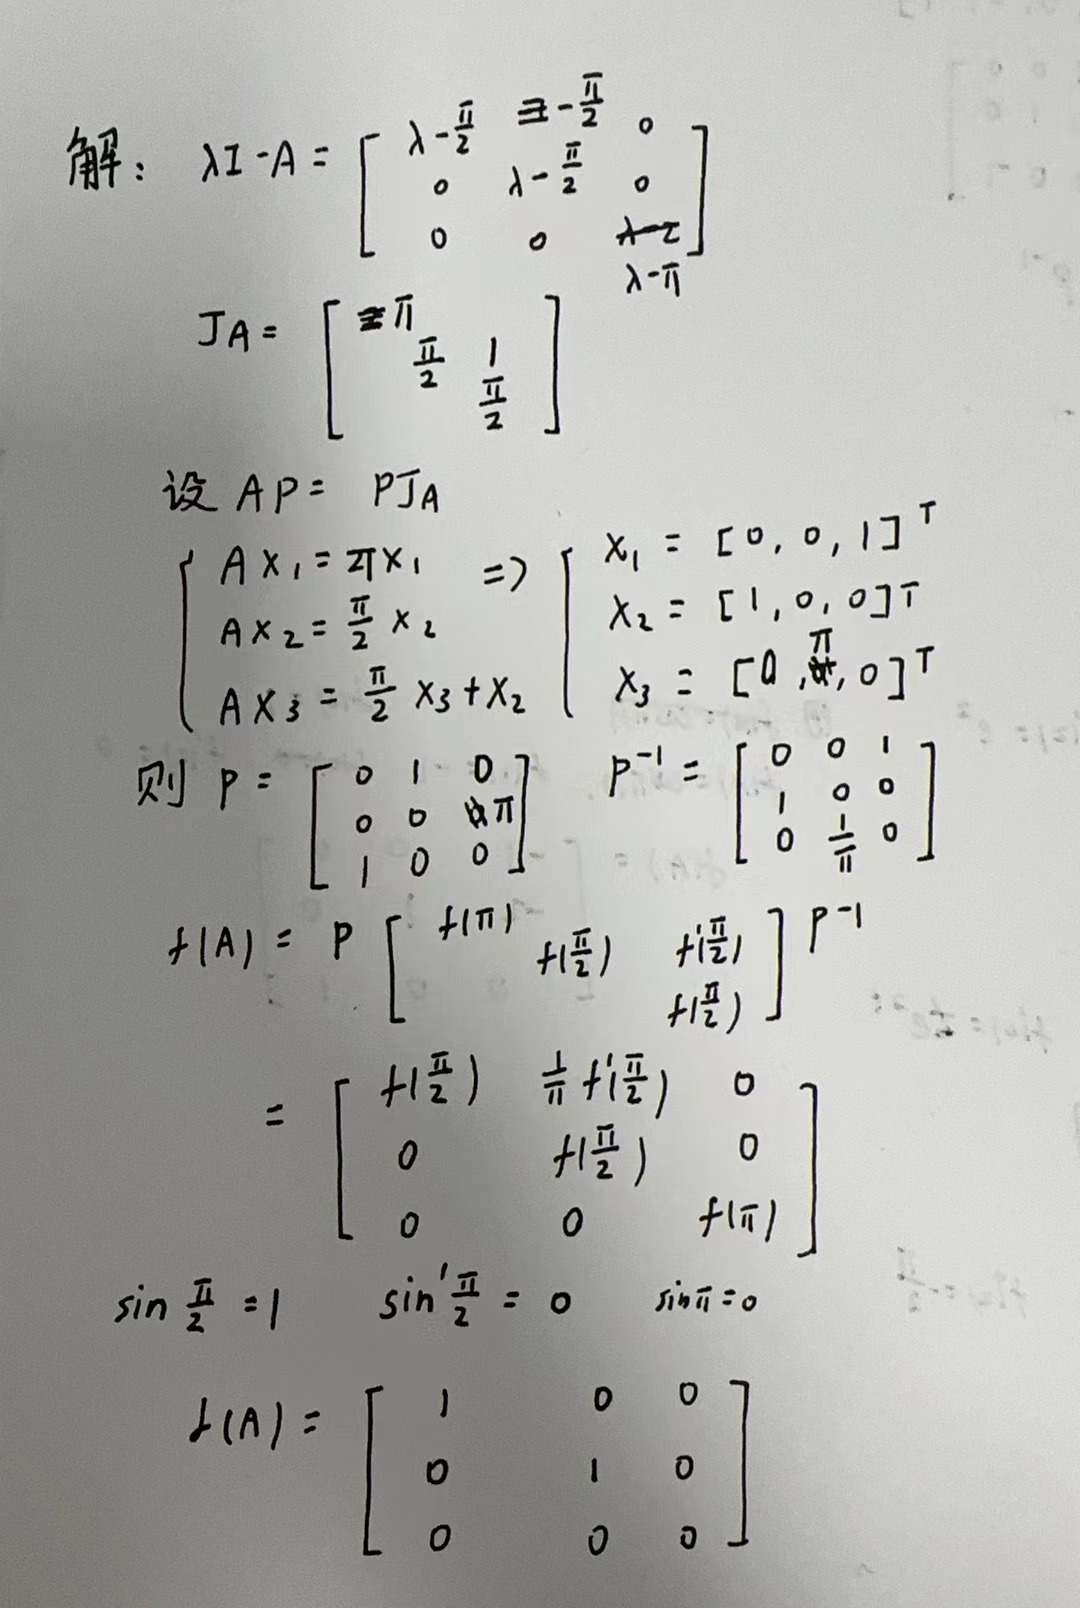 解: λI-A= [ λ-π/2 -π/2 0
0 λ-π/2 0
0 0 λ-π ]
JA= [ π
π/2 1
π/2 ]
设 AP= PJA
{ AX1=πX1 => { X1 = [0,0,1]^T
AX2=π/2 X2 X2 = [1,0,0]^T
AX3=π/2 X3+X2 X3 = [0,π,0]^T
则 P= [ 0 1 0 P^-1= [ 0 0 1
0 0 π 1 0 0
1 0 0 ] 0 1/π 0 ]
f(A) = P [ f(π)
f(π/2) f'(π/2)
f(π/2) ] P^-1
= [ f(π/2) 1/π f'(π/2) 0
0 f(π/2) 0
0 0 f(π) ]
sin π/2 =1 sin' π/2 = 0 sinπ=0
f(A)= [ 1 0 0
0 1 0
0 0 0 ]